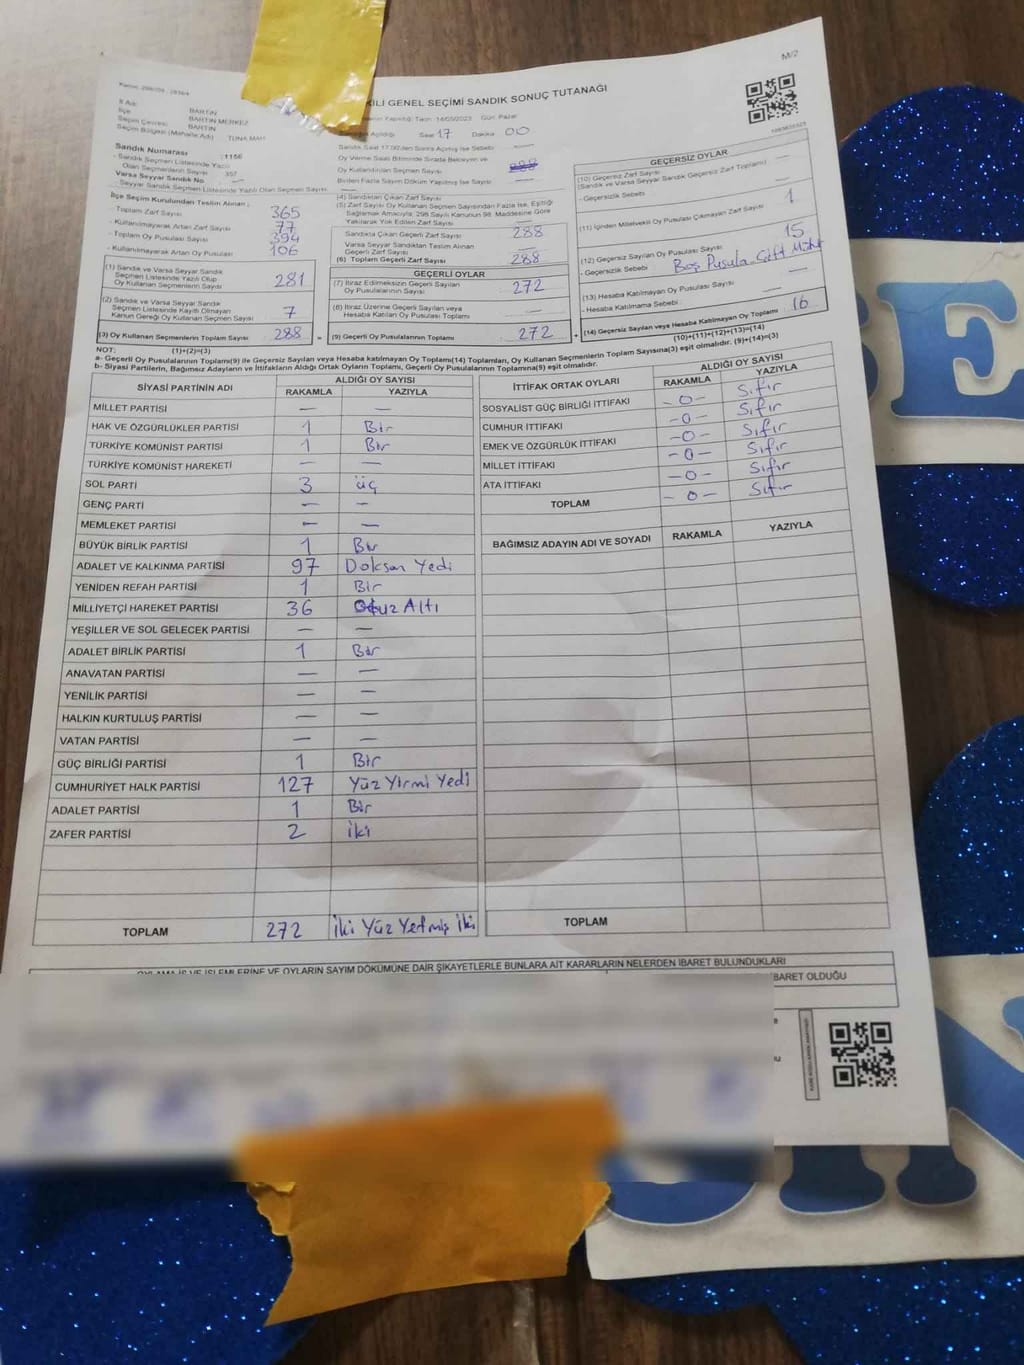 M/2
KİLİ GENEL SEÇİMİ SANDIK SONUÇ TUTANAĞI
İl Adı: BARTIN
İlçe BARTIN MERKEZ
Seçim Çevresi: BARTIN
Seçim Bölgesi (Mahalle Adı): TUNA MAH.
Tarih: 14/05/2023 Gün: Pazar
Açıldığı Saat 17 Dakika 00
Sandık Numarası :1156
- Sandık Seçmen Listesinde Yazılı
Olan Seçmenlerin Sayısı 357
Varsa Seyyar Sandık No —
- Seyyar Sandık Seçmen Listesinde Yazılı Olan Seçmen Sayısı: —
İlçe Seçim Kurulundan Teslim Alınan :
- Toplam Zarf Sayısı 365
- Kullanılmayarak Artan Zarf Sayısı 77
- Toplam Oy Pusulası Sayısı 394
- Kullanılmayarak Artan Oy Pusulası 106
(1) Sandık ve Varsa Seyyar Sandık
Seçmen Listesinde Yazılı Olup
Oy Kullanan Seçmen Sayısı 281
(2) Sandık ve Varsa Seyyar Sandık
Seçmen Listesinde Kayıtlı Olmayan
Kanun Gereği Oy Kullanan Seçmen Sayısı 7
(3) Oy Kullanan Seçmenlerin Toplam Sayısı 288
Sandık Saat 17.00'den Sonra Açılmış İse Sebebi: —
Oy Verme Saati Bitiminde Sırada Bekleyen ve
Oy Kullandırılan Seçmen Sayısı 288
Birden Fazla Sayım Döküm Yapılmış İse Sayısı —
(4) Sandıktan Çıkan Zarf Sayısı
(5) Zarf Sayısı Oy Kullanan Seçmen Sayısından Fazla İse, Eşitliği
Sağlamak Amacıyla; 298 Sayılı Kanunun 98. Maddesine Göre
Yakılarak Yok Edilen Zarf Sayısı —
Sandıkta Çıkan Geçerli Zarf Sayısı 288
Varsa Seyyar Sandıktan Teslim Alınan
Geçerli Zarf Sayısı —
(6) Toplam Geçerli Zarf Sayısı 288
GEÇERLİ OYLAR
(7) İtiraz Edilmeksizin Geçerli Sayılan
Oy Pusulalarının Sayısı 272
(8) İtiraz Üzerine Geçerli Sayılan veya
Hesaba Katılan Oy Pusulası Toplamı —
= (9) Geçerli Oy Pusulalarının Toplamı 272 +
GEÇERSİZ OYLAR
(10) Geçersiz Zarf Sayısı
(Sandık ve Varsa Seyyar Sandık Geçersiz Zarf Toplamı) —
- Geçersizlik Sebebi: —
(11) İçinden Milletvekili Oy Pusulası Çıkmayan Zarf Sayısı 1
(12) Geçersiz Sayılan Oy Pusulası Sayısı 15
- Geçersizlik Sebebi Boş Pusula - Çift Mühür
(13) Hesaba Katılmayan Oy Pusulası Sayısı —
- Hesaba Katılmama Sebebi : —
(14) Geçersiz Sayılan veya Hesaba Katılmayan Oy Toplamı 16
NOT: (1)+(2)=(3) (10)+(11)+(12)+(13)=(14)
a- Geçerli Oy Pusulalarının Toplamı(9) ile Geçersiz Sayılan veya Hesaba katılmayan Oy Toplamı(14) Toplamları, Oy Kullanan Seçmenlerin Toplam Sayısına(3) eşit olmalıdır. (9)+(14)=(3)
b- Siyasi Partilerin, Bağımsız Adayların ve İttifakların Aldığı Ortak Oyların Toplamı, Geçerli Oy Pusulalarının Toplamına(9) eşit olmalıdır.
SİYASİ PARTİNİN ADI ALDIĞI OY SAYISI
RAKAMLA YAZIYLA
MİLLET PARTİSİ — —
HAK VE ÖZGÜRLÜKLER PARTİSİ 1 Bir
TÜRKİYE KOMÜNİST PARTİSİ 1 Bir
TÜRKİYE KOMÜNİST HAREKETİ — —
SOL PARTİ 3 üç
GENÇ PARTİ — —
MEMLEKET PARTİSİ — —
BÜYÜK BİRLİK PARTİSİ 1 Bir
ADALET VE KALKINMA PARTİSİ 97 Doksan Yedi
YENİDEN REFAH PARTİSİ 1 Bir
MİLLİYETÇİ HAREKET PARTİSİ 36 Otuz Altı
YEŞİLLER VE SOL GELECEK PARTİSİ — —
ADALET BİRLİK PARTİSİ 1 Bir
ANAVATAN PARTİSİ — —
YENİLİK PARTİSİ — —
HALKIN KURTULUŞ PARTİSİ — —
VATAN PARTİSİ — —
GÜÇ BİRLİĞİ PARTİSİ 1 Bir
CUMHURİYET HALK PARTİSİ 127 Yüz Yirmi Yedi
ADALET PARTİSİ 1 Bir
ZAFER PARTİSİ 2 iki
TOPLAM 272 İki Yüz Yetmiş İki
İTTİFAK ORTAK OYLARI ALDIĞI OY SAYISI
RAKAMLA YAZIYLA
SOSYALİST GÜÇ BİRLİĞİ İTTİFAKI -0- Sıfır
CUMHUR İTTİFAKI -0- Sıfır
EMEK VE ÖZGÜRLÜK İTTİFAKI -0- Sıfır
MİLLET İTTİFAKI -0- Sıfır
ATA İTTİFAKI -0- Sıfır
TOPLAM -0- Sıfır
BAĞIMSIZ ADAYIN ADI VE SOYADI RAKAMLA YAZIYLA
TOPLAM
OYLAMA İŞ VE İŞLEMLERİNE VE OYLARIN SAYIM DÖKÜMÜNE DAİR ŞİKAYETLERLE BUNLARA AİT KARARLARIN NELERDEN İBARET BULUNDUKLARI
İBARET OLDUĞU
SE